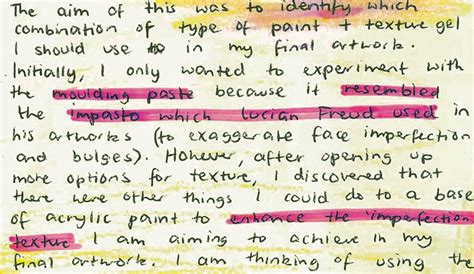 The aim of this was to identify which
combination of type of paint + texture gel
I should use in my final artwork.
Initially, I only wanted to experiment with
the moulding paste because it resembled
the impasto which Lucian Freud used in
his artworks (to exaggerate face imperfection
and bulges). However, after opening up
more options for texture, I discovered that
there were other things I could do to a base
of acrylic paint to enhance the 'imperfection
texture I am aiming to achieve in my
final artwork. I am thinking of using the